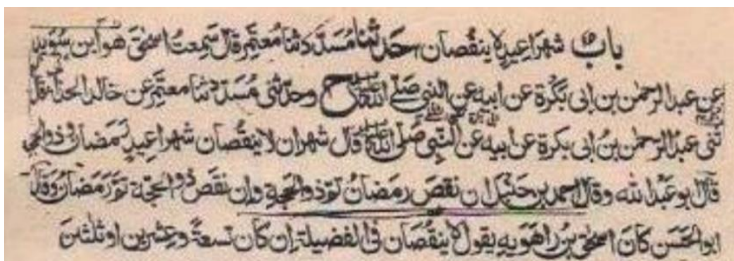 باب شهرا عيد لا ينقصان حدثنا مسدد ثنا معتمر قال سمعت اسحٰق هو ابن سويد
عن عبد الرحمٰن بن ابى بكرة عن ابيه عن النبى صلى الله عليه وسلم ح وحدثنى مسدد ثنا معتمر عن خالد الحذاء قال
ثنى عبد الرحمٰن بنُ ابى بكرة عن ابيه عن النَّبِى صلى الله عليه وسلم قال شهران لا ينقصان شهرا عيد رمضان وذو الحجة
قال ابو عَبْد الله وقال احمد بن حنبل ان نقصَ رمضانُ تم ذو الحجة وان نقَص ذو الحجّة تم رَمَضانُ وقال
ابو الحسَن كانَ اسحٰقُ بنُ راهويهِ يقول لا ينقصان فى الفضيلة ان كان تسعةً وعشرين او ثلثين